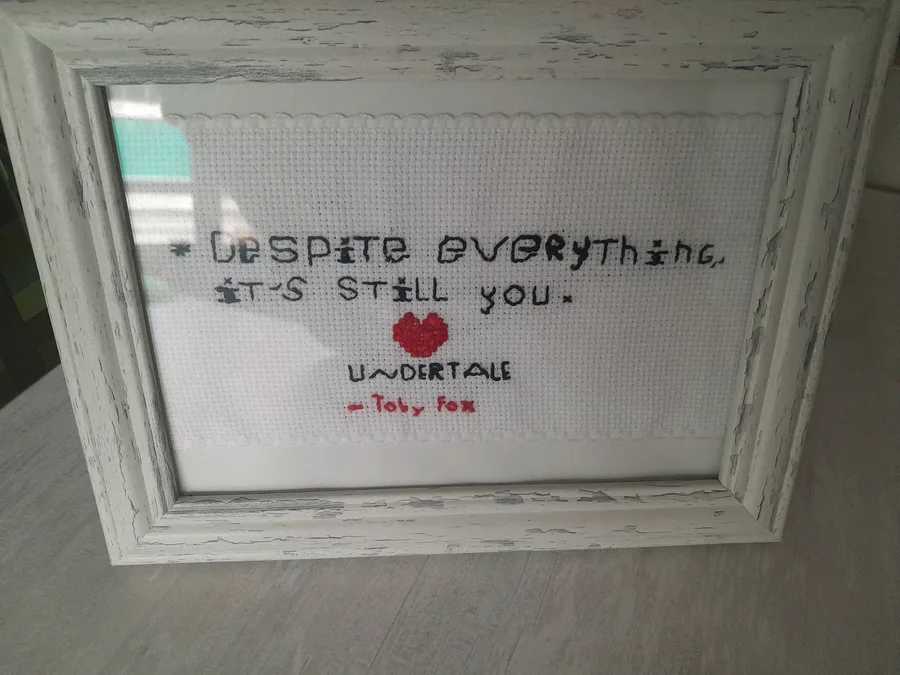 * Despite everything,
it's still you.
UNDERTALE
- Toby Fox